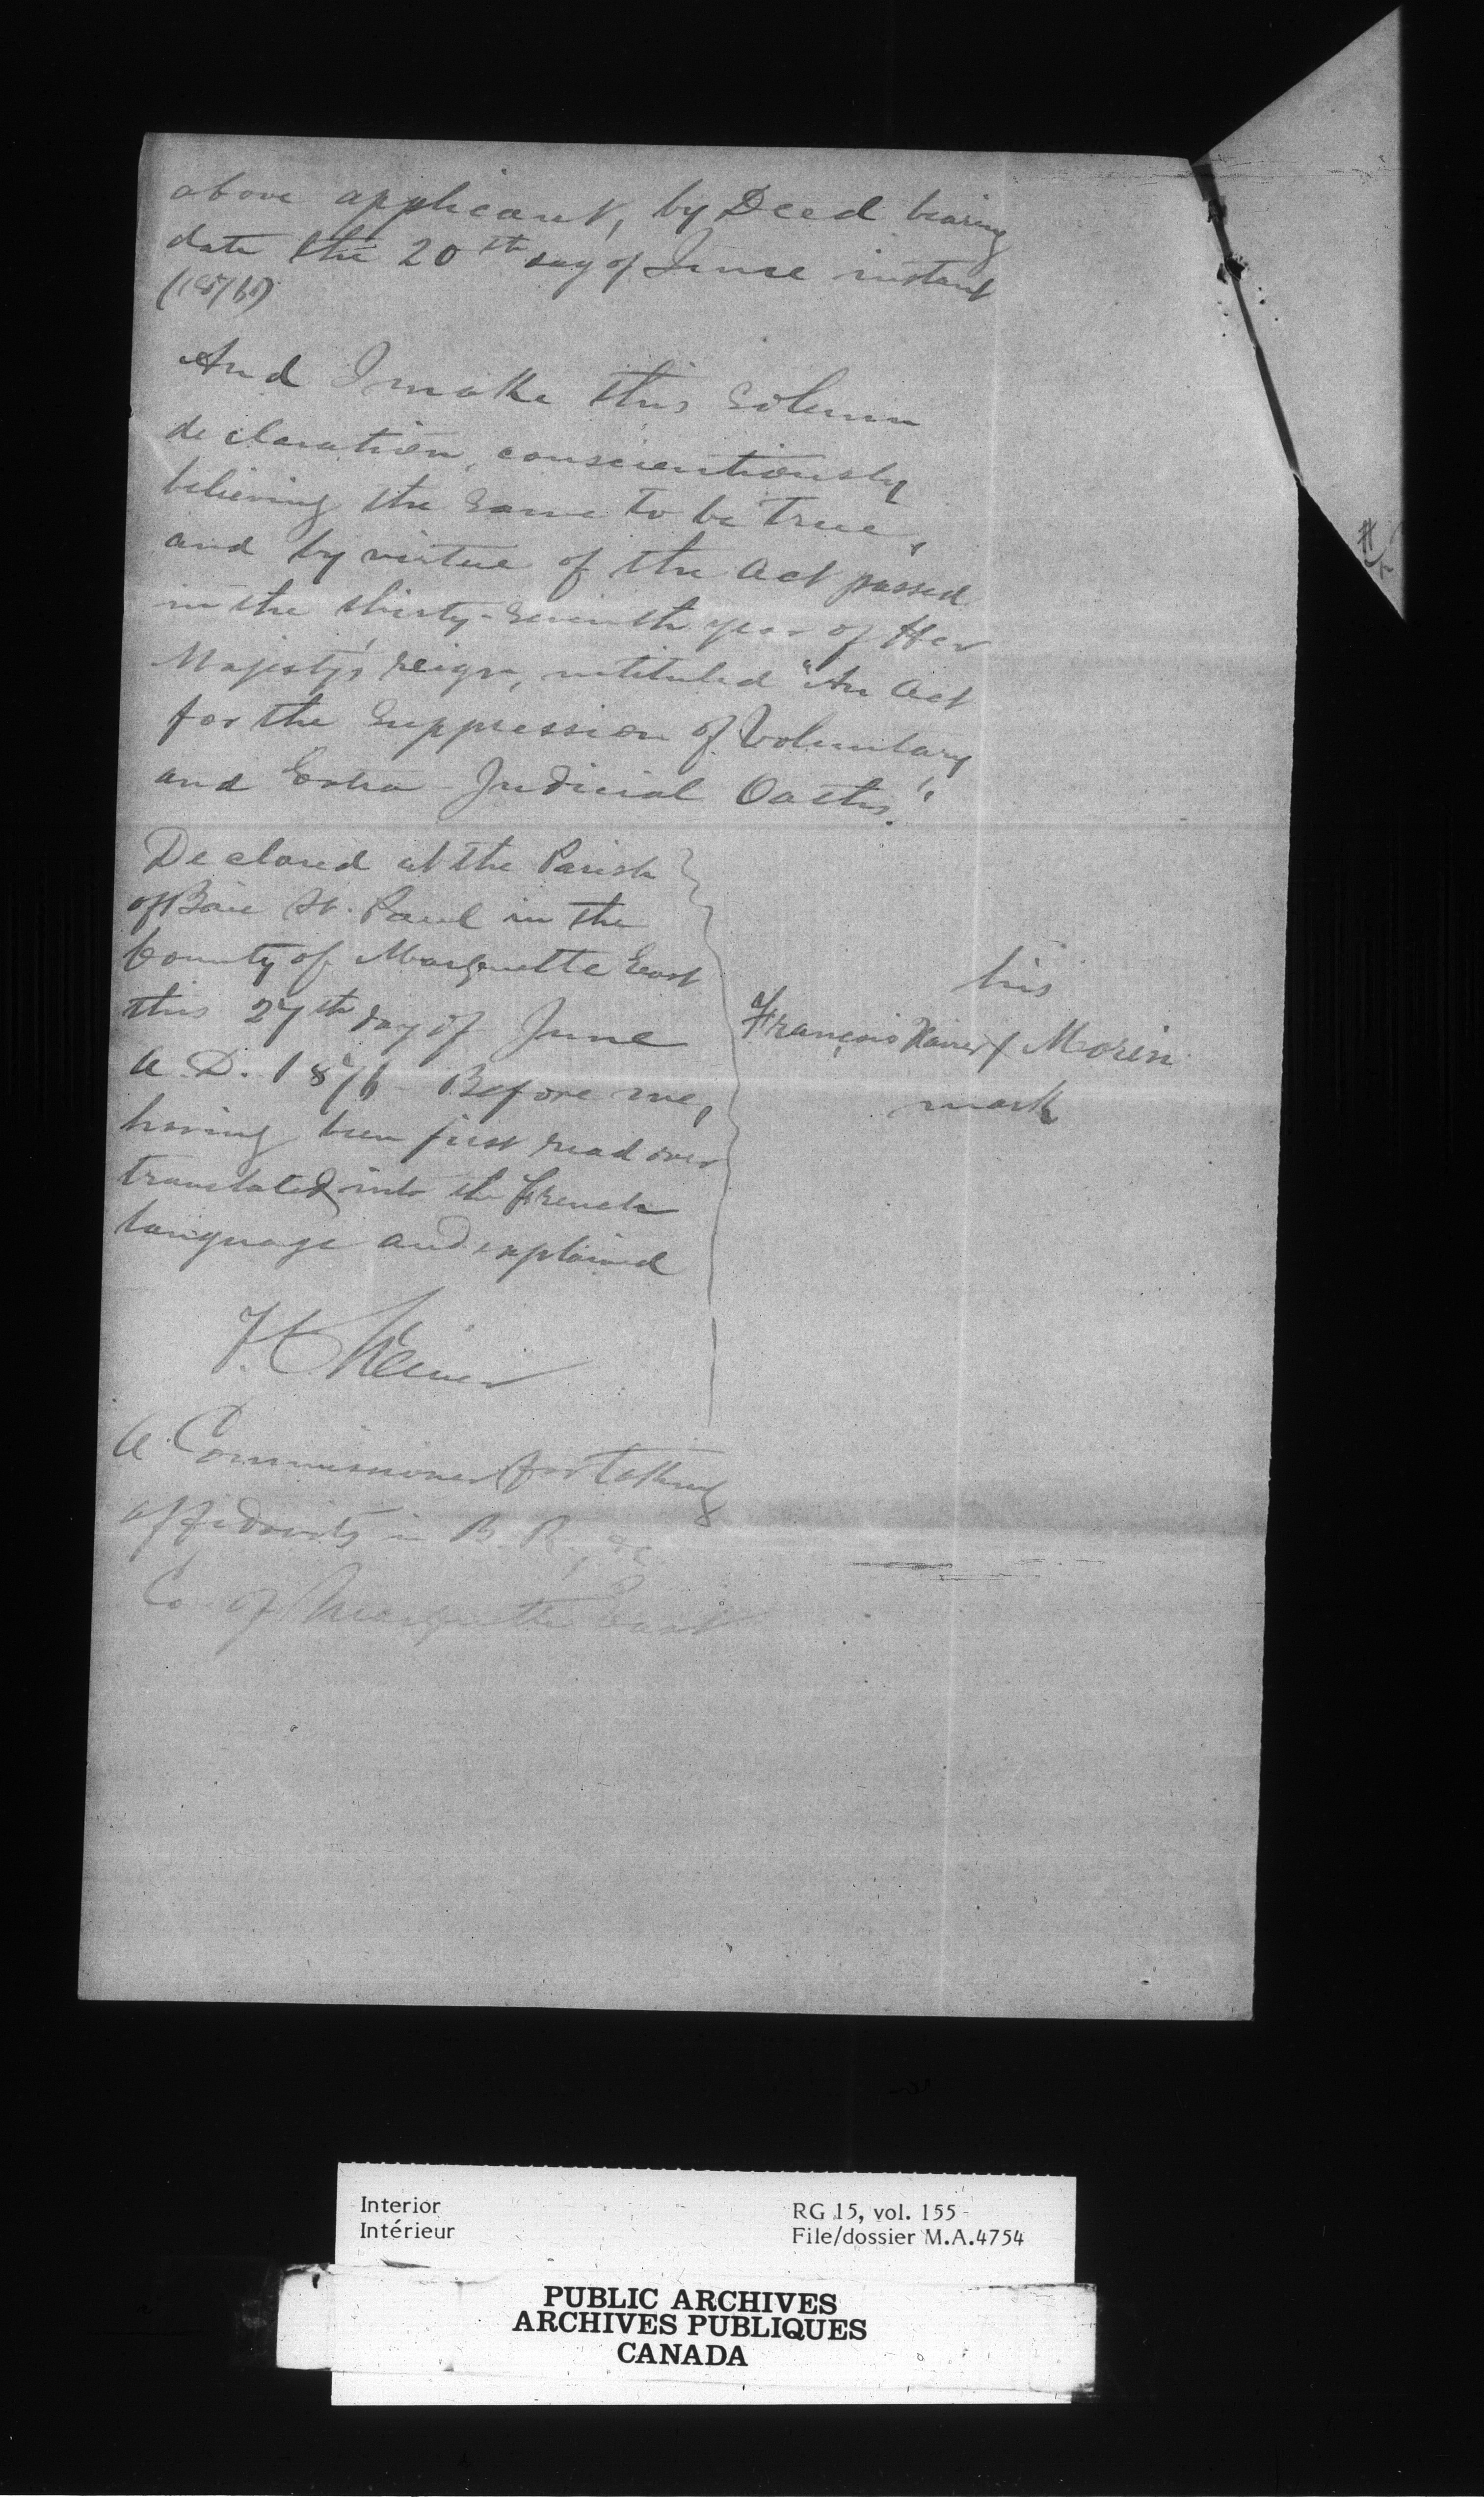 above applicant, by Deed bearing
date the 20th day of June instant
(1876)
And I make this Solemn
declaration, conscientiously
believing the Same to be True,
and by virtue of the Act passed
in the thirty-Seventh year of Her
Majesty's reign, intituled "An Act
for the Suppression of Voluntary
and Extra-Judicial Oaths."
Declared at the Parish
of Baie St. Paul in the
County of Marquette East
this 27th day of June
A.D. 1876 - Before me,
having been first read over
translated into the French
language and explained
his
François Xavier X Morin
mark
A Commissioner for taking
affidavits in B.R., &c
Co. of Marquette East
Interior
Intérieur
RG 15, vol. 155
File/dossier M.A.4754
PUBLIC ARCHIVES
ARCHIVES PUBLIQUES
CANADA